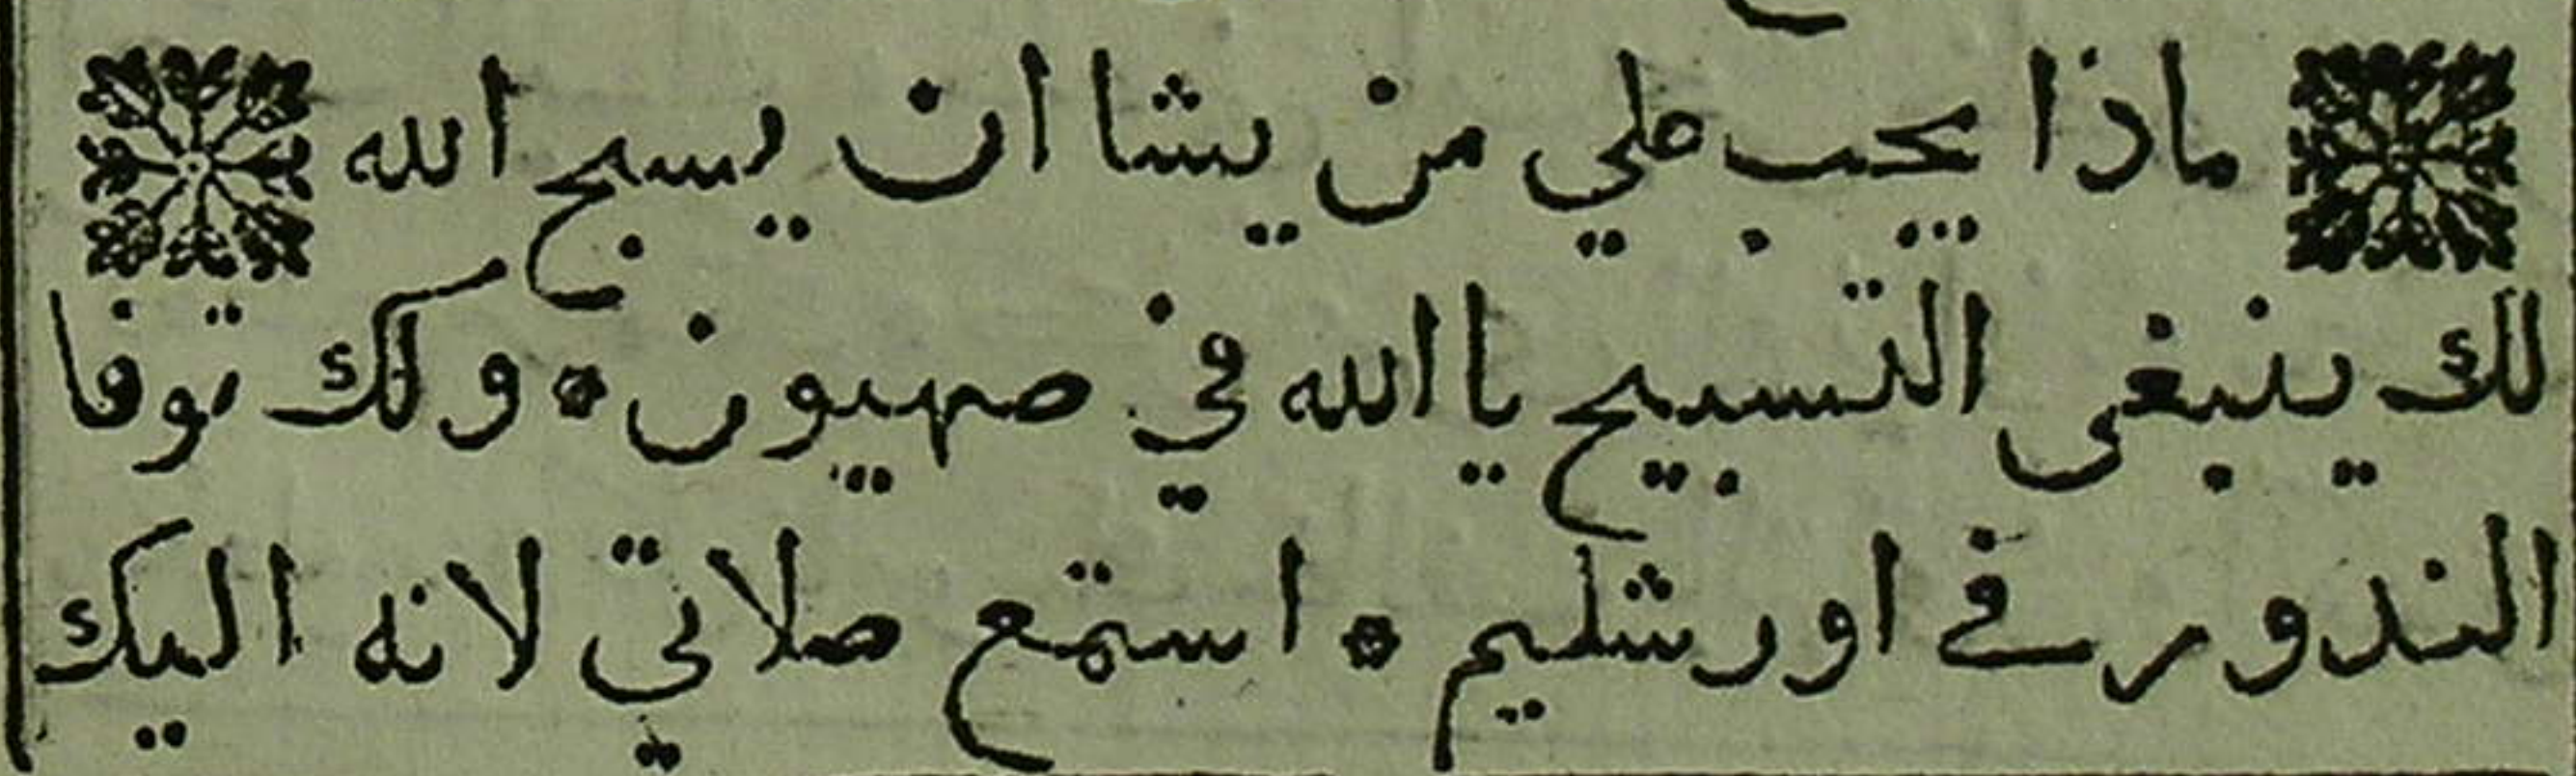 ماذا يجب علي من يشا ان يسبح الله
لك ينبغى التسبيح يا الله في صهيون ۞ ولك توفا
الندور في اورشليم ۞ استمع صلاتي لانه اليك